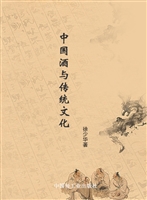 中国酒与传统文化
徐少华 著
中国轻工业出版社